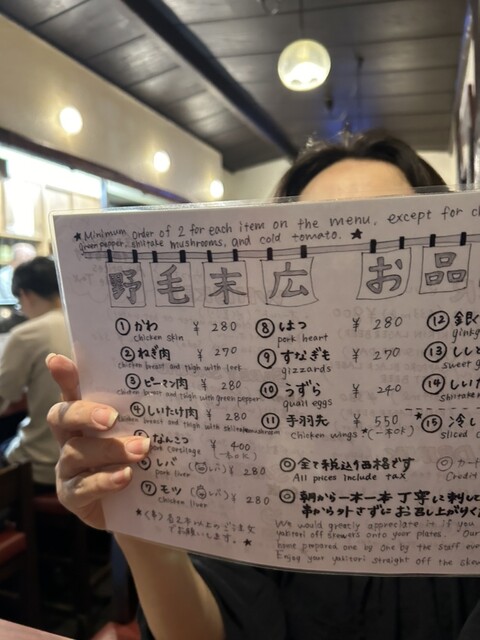 ★Minimum order of 2 for each item on the menu, except for
green pepper, shiitake mushrooms, and cold tomato. ★
野毛末広 お品
① かわ ¥ 280
chicken skin
② ねぎ肉 ¥ 270
chicken breast and thigh with leek
③ ピーマン肉 ¥ 280
chicken breast and thigh with green pepper
④ しいたけ肉 ¥ 280
chicken breast and thigh with shiitake mushroom
なんこつ ¥ 400
cartilage (一本OK)
⑥ レバ (レバ) ¥ 280
pork liver
⑦ モツ (レバ) ¥ 280
chicken liver
でお願いします。★
⑧ はつ ¥ 280
pork heart
⑨ すなぎも ¥ 270
gizzards
⑩ うずら ¥ 240
quail eggs
⑪ 手羽先 ¥ 550
chicken wings *(一本OK)
⑫ 銀
ging
⑬ しし
sweet g
⑭ しいた
shiitake
⑮ 冷し
sliced
◎ 全て税込価格です
All prices include tax
◎ カー
Credit
◎ 朝から一本一本丁寧に刺して
串から外さずにお召し上がりく
We would greatly appreciate it if you
yakitori off skewers onto your plates. Our
home prepared one by one by the staff ever
Enjoy your yakitori straight off the skew